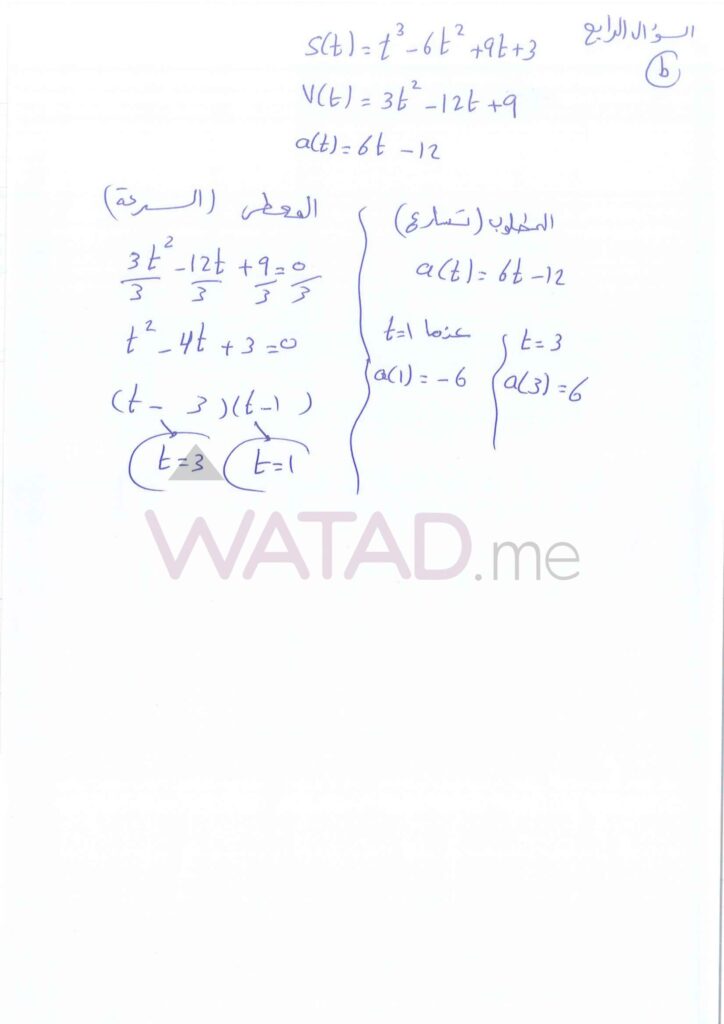 السؤال الرابع
b
S(t) = t³ - 6t² + 9t + 3
V(t) = 3t² - 12t + 9
a(t) = 6t - 12
المعطى (السرعة)
3t²/3 - 12t/3 + 9/3 = 0/3
t² - 4t + 3 = 0
(t - 3)(t - 1)
t = 3 t = 1
المطلوب (تسارع)
a(t) = 6t - 12
عندما t=1
a(1) = -6
t = 3
a(3) = 6
WATAD.me